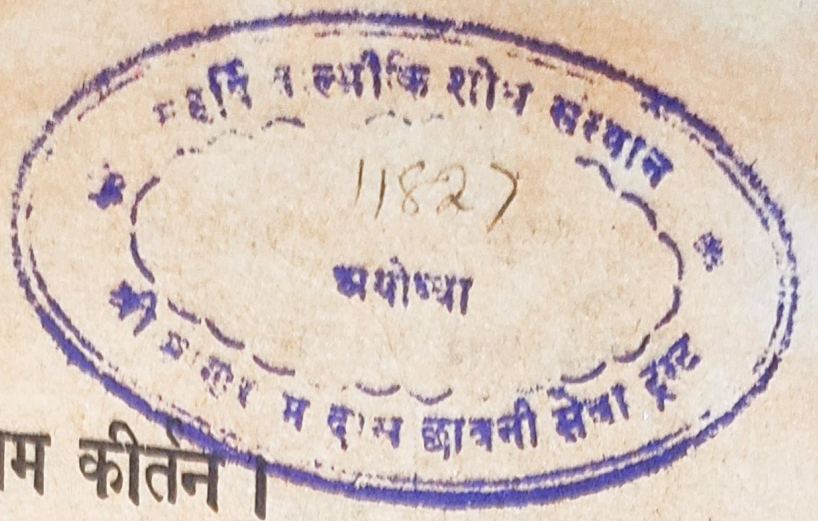 महर्षि वाल्मीकि शोध संस्थान
11827
अयोध्या
श्री म दास छावनी सेवा ट्रस्ट
कीर्तन ।